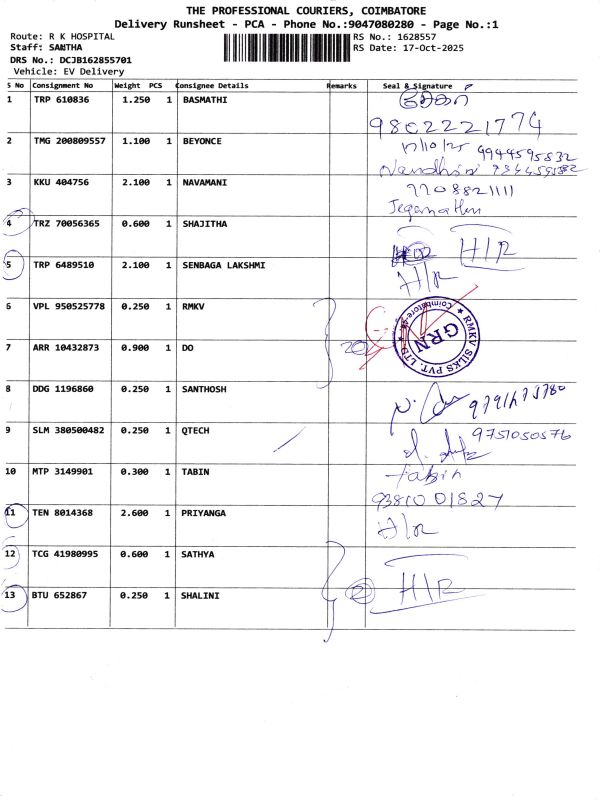 THE PROFESSIONAL COURIERS, COIMBATORE
Delivery Runsheet - PCA - Phone No.:9047080280 - Page No.:1
Route: R K HOSPITAL
Staff: SANTHA
DRS No.: DCJB162855701
Vehicle: EV Delivery
RS No.: 1628557
RS Date: 17-Oct-2025
S No Consignment No Weight PCS Consignee Details Remarks Seal & Signature
1 TRP 610836 1.250 1 BASMATHI
2 TMG 200809557 1.100 1 BEYONCE 17/10/25 9944595832
3 KKU 404756 2.100 1 NAVAMANI 7708821111
Jeganathan
4 TRZ 70056365 0.600 1 SHAJITHA H/R
5 TRP 6489510 2.100 1 SENBAGA LAKSHMI H/R
6 VPL 950525778 0.250 1 RMKV
7 ARR 10432873 0.900 1 DO
RMKV SILKS PVT. LTD
Coimbatore
GRN
8 DDG 1196860 0.250 1 SANTHOSH
9 SLM 380500482 0.250 1 QTECH 9751050576
10 MTP 3149901 0.300 1 TABIN tabin
9381001827
11 TEN 8014368 2.600 1 PRIYANGA H/R
12 TCG 41980995 0.600 1 SATHYA
13 BTU 652867 0.250 1 SHALINI 2 H/R